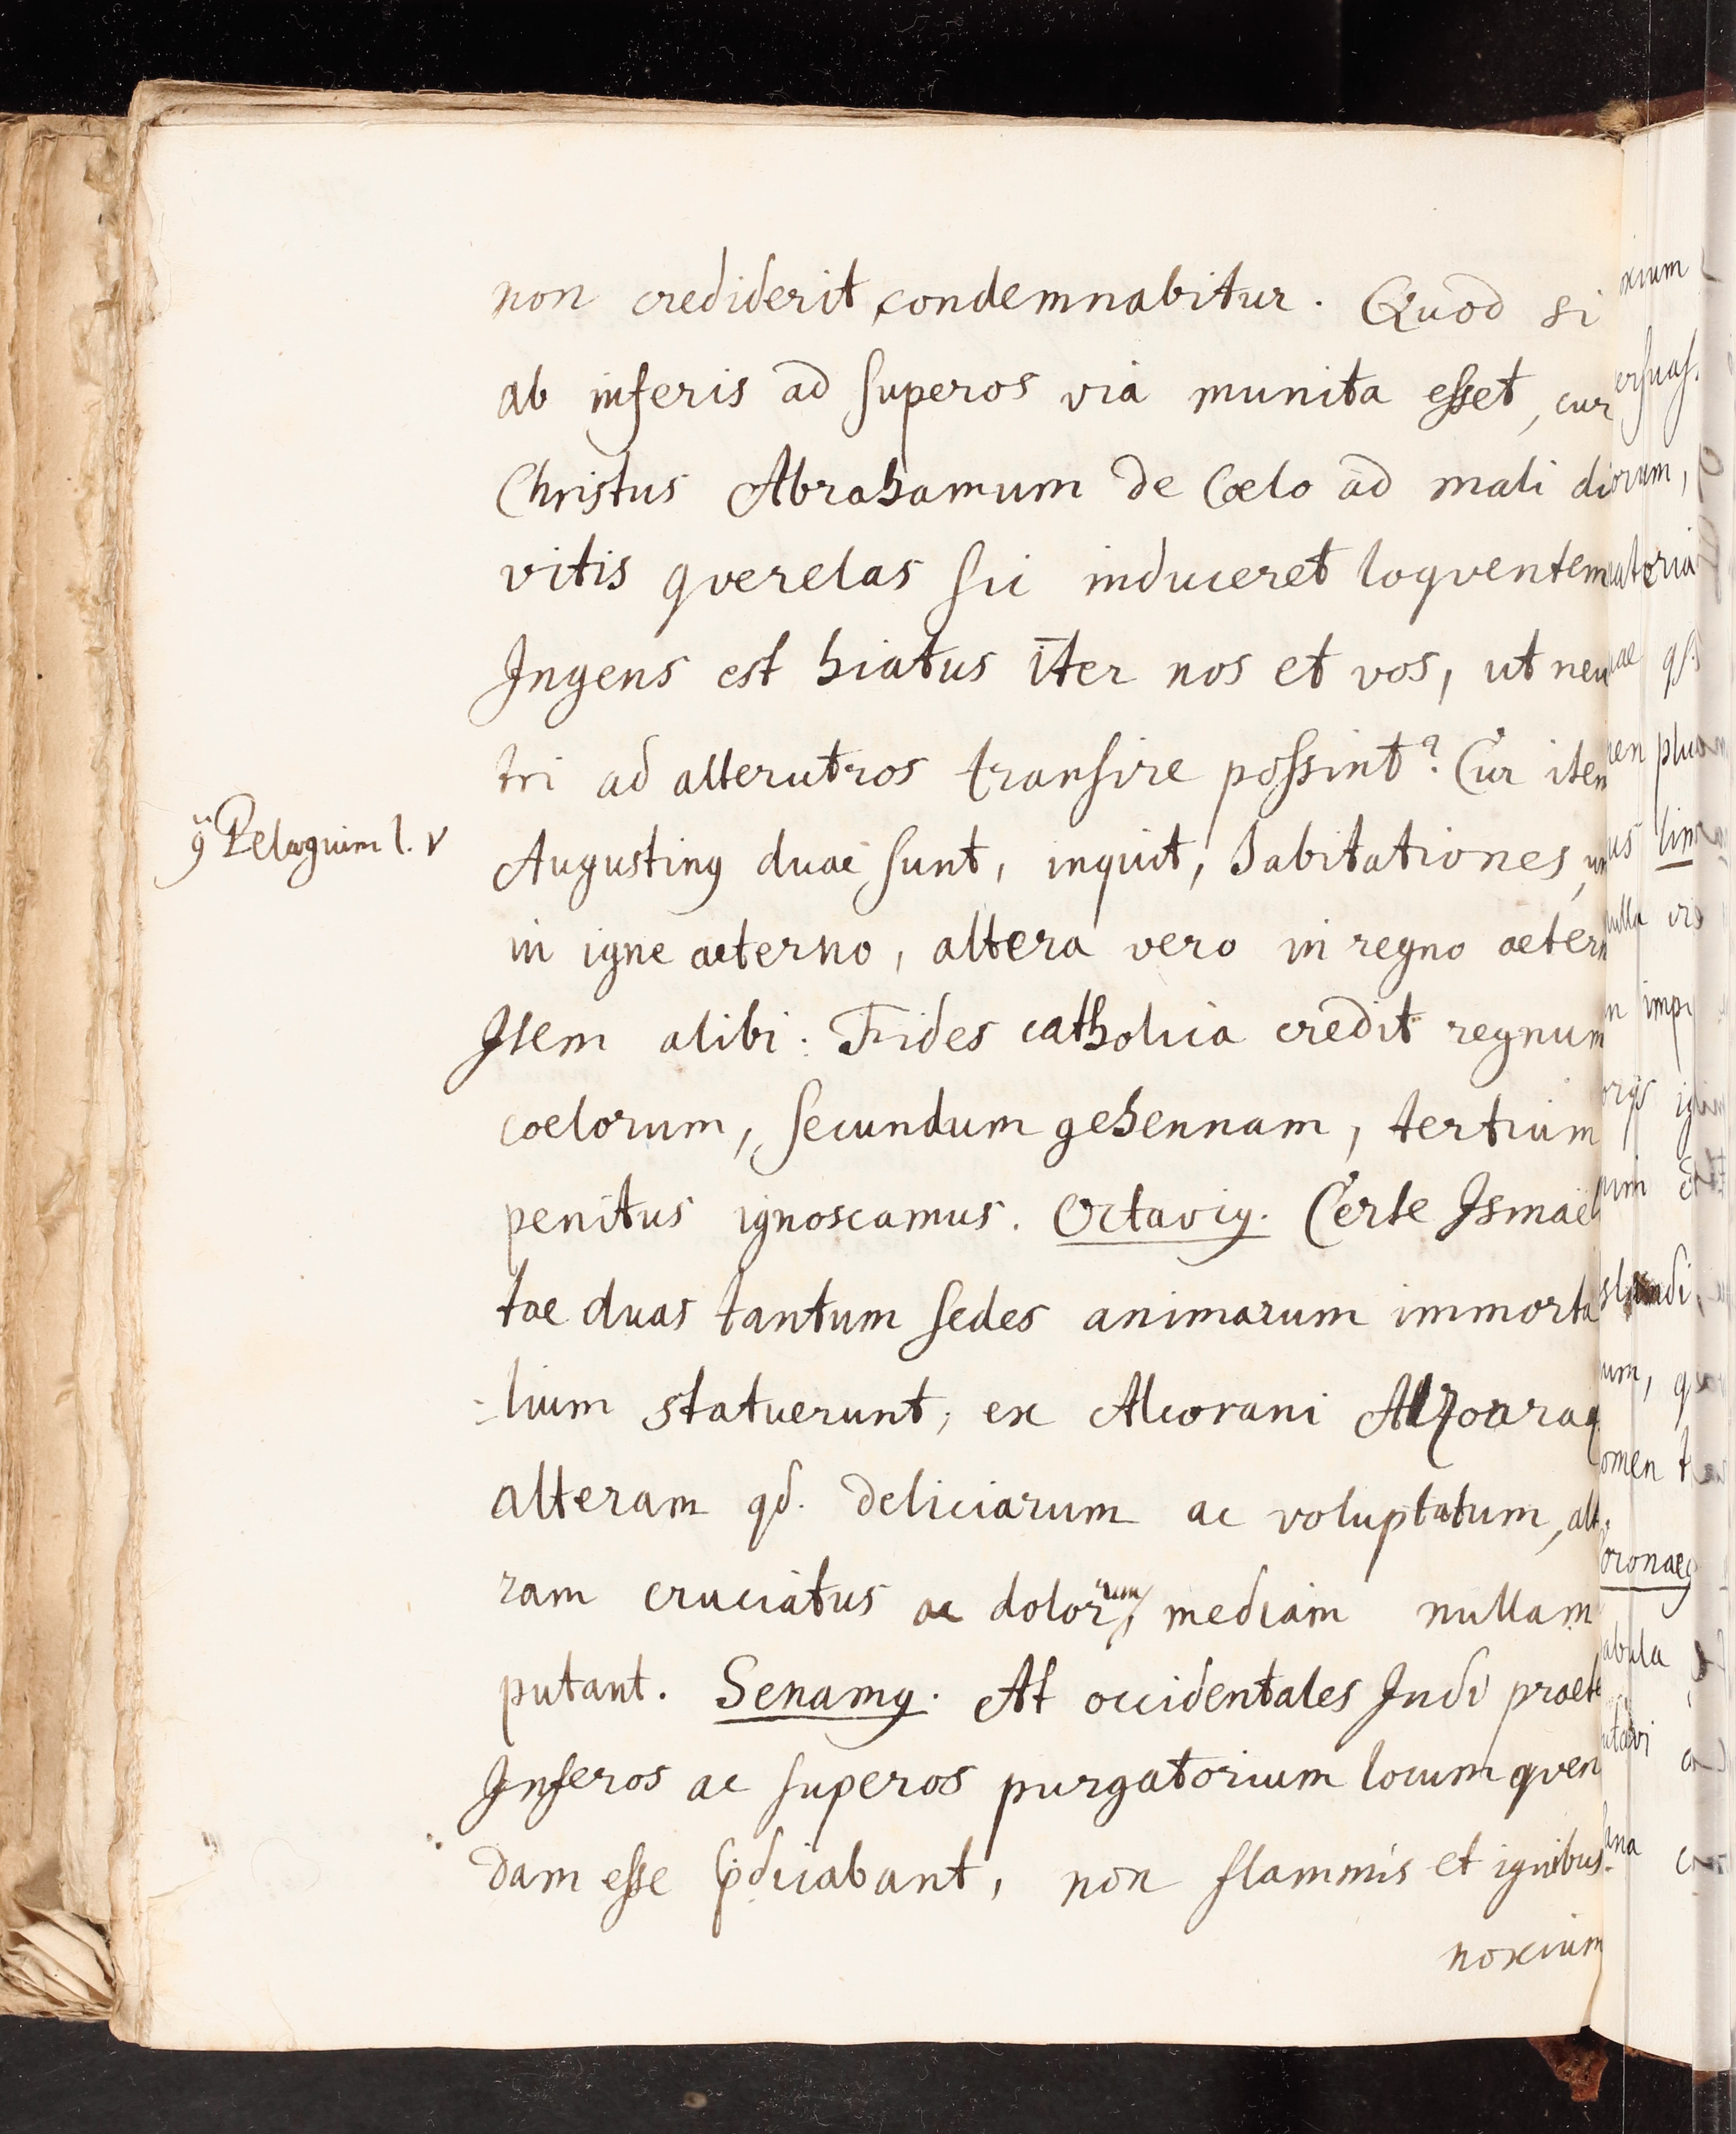 non crediderit condemnabitur. Quod si
ab inferis ad superos via munita esset, cur
Christus Abrahamum de Cœlo ad mali di
vitis qverelas sic induceret loqventem
Ingens est hiatus īter nos et vos, ut neu
tri ad alterutros transire possint? Cur item
Pelagium l. V
Augustinꝰ duae sunt, inquit, habitationes, una
in igne aeterno, altera vero in regno aetern
Item alibi: Fides catholica credit regnum
coelorum, secundum gehennam, tertium
penitus ignoscamus. Octaviꝰ. Certe Ismaeli
tae duas tantum sedes animarum immorta
=lium statuerunt, ex Alcorani Alzoaraq
alteram qd. deliciarum ac voluptatum, alt
ram cruciatus ac dolorum, mediam nullam
putant. Senamꝰ. At occidentales Indi praete
Inferos ac superos purgatorium locum qven
dam esse p̄dicabant, non flammis et ignibus
noxium